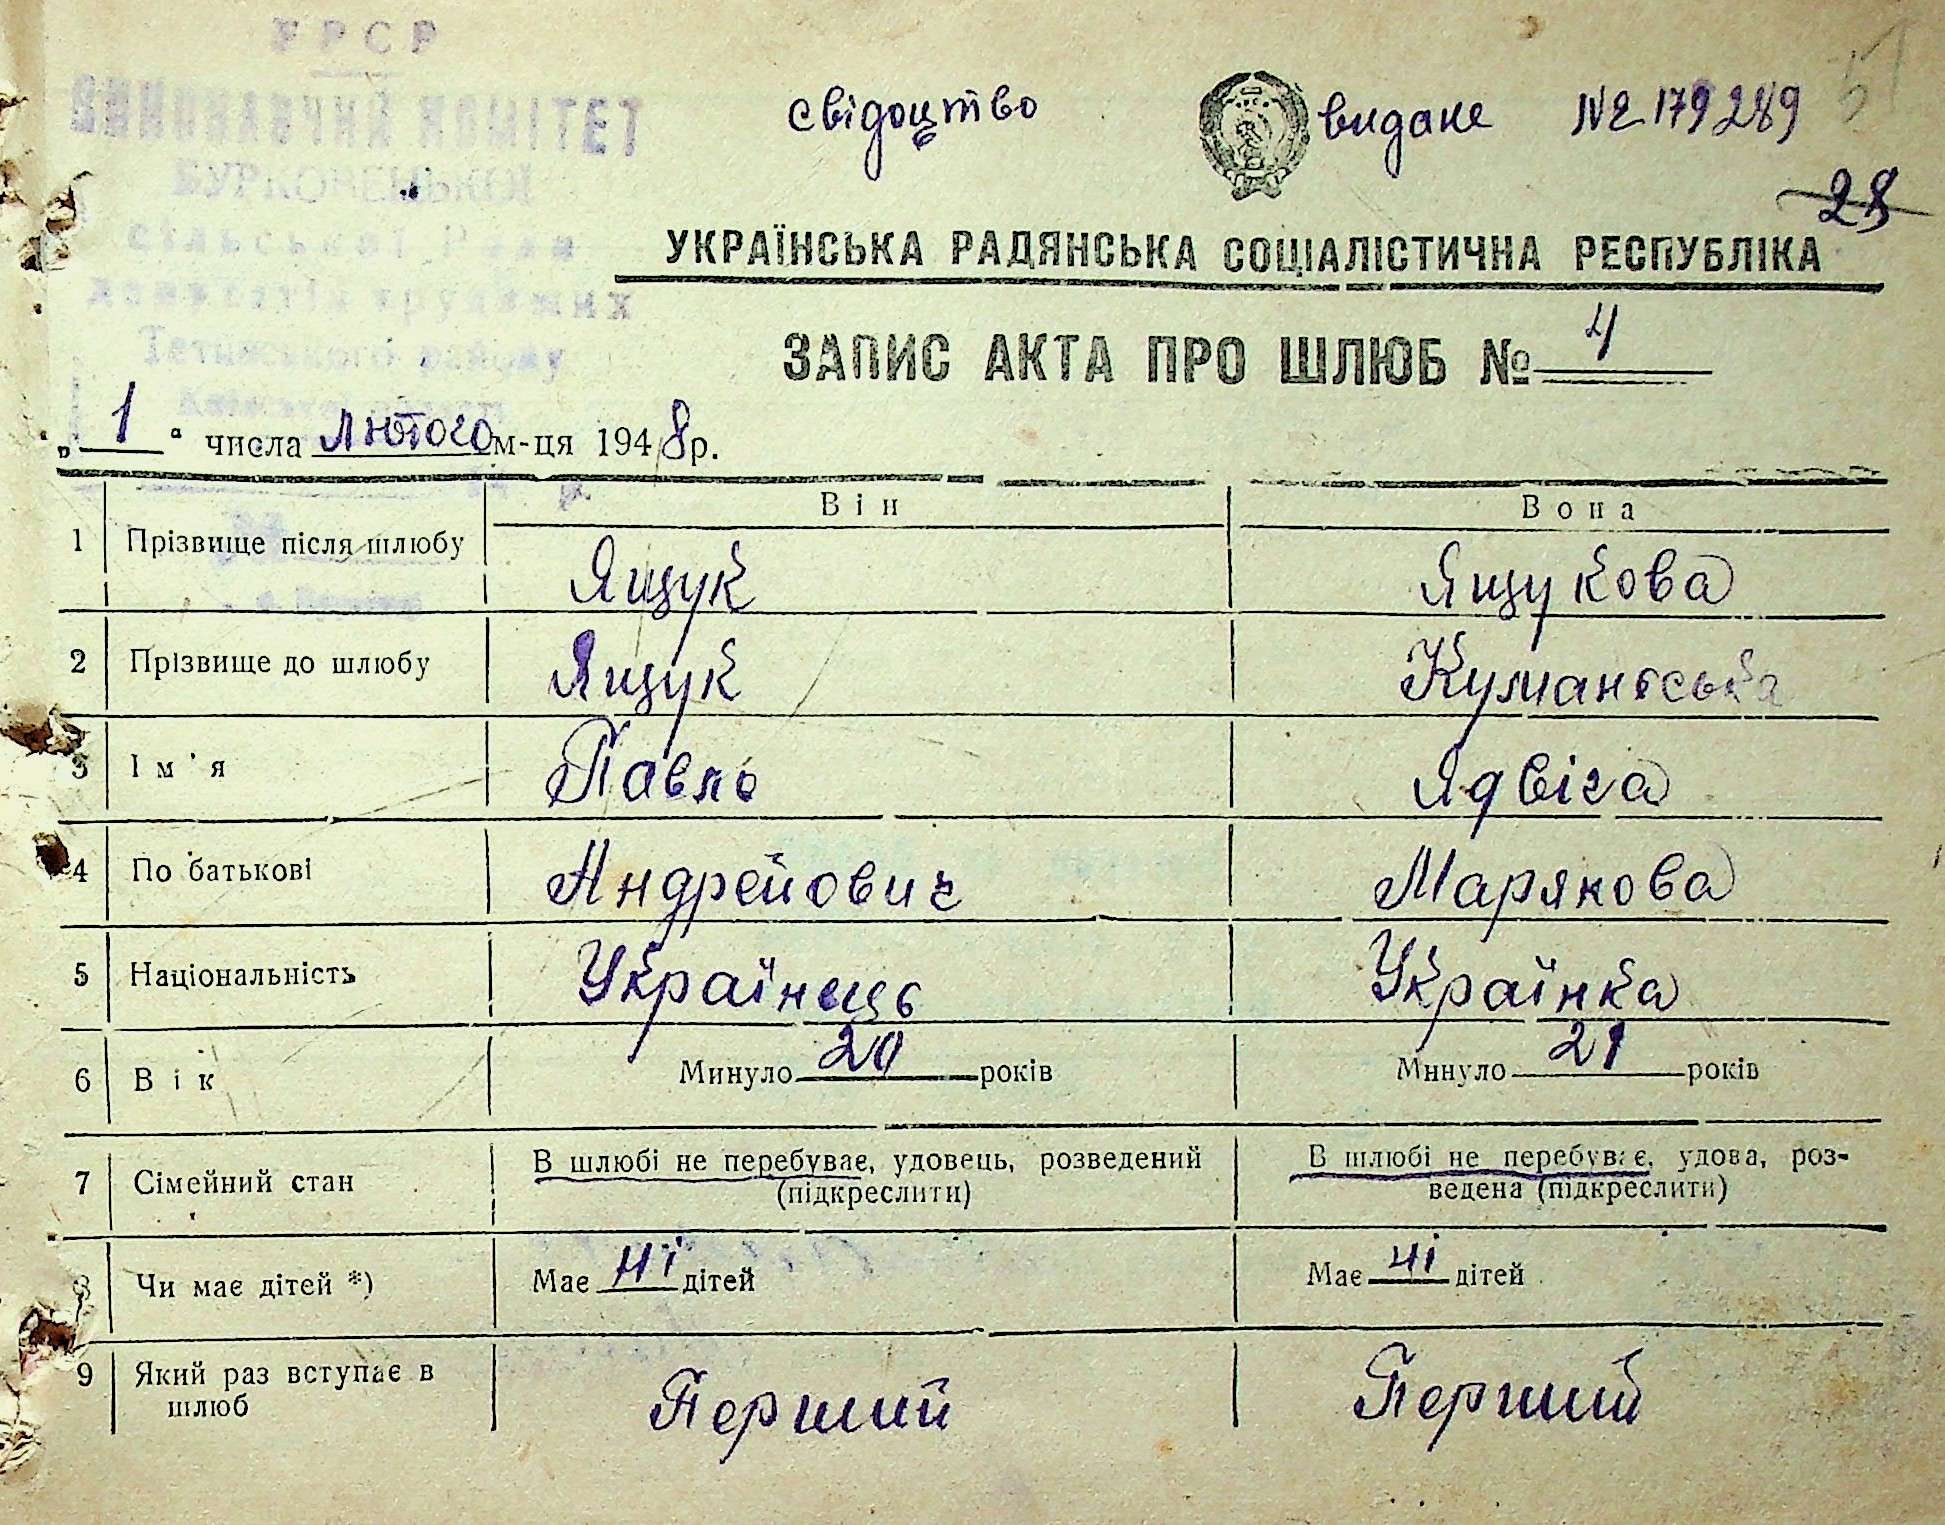 УРСР
ВИКОНАВЧИЙ КОМІТЕТ
БУРКОВЕЦЬКОЇ
сільської Ради
депутатів трудящих
Тетіївського району
Київської області
51
свідоцтво видане № 179289
28
УКРАЇНСЬКА РАДЯНСЬКА СОЦІАЛІСТИЧНА РЕСПУБЛІКА
ЗАПИС АКТА ПРО ШЛЮБ № 4
„ 1 “ числа лютого м-ця 1948 р.
Він Вона
1 Прізвище після шлюбу Ящук Ящукова
2 Прізвище до шлюбу Ящук Куманоська
3 Ім'я Павло Ядвіга
4 По батькові Андрейович Марянова
5 Національність Українець Українка
6 Вік Минуло 20 років Минуло 21 років
7 Сімейний стан В шлюбі не перебуває, удовець, розведений В шлюбі не перебуває, удова, роз-
(підкреслити) ведена (підкреслити)
8 Чи має дітей *) Має ні дітей Має ні дітей
9 Який раз вступає в Перший Перший
шлюб